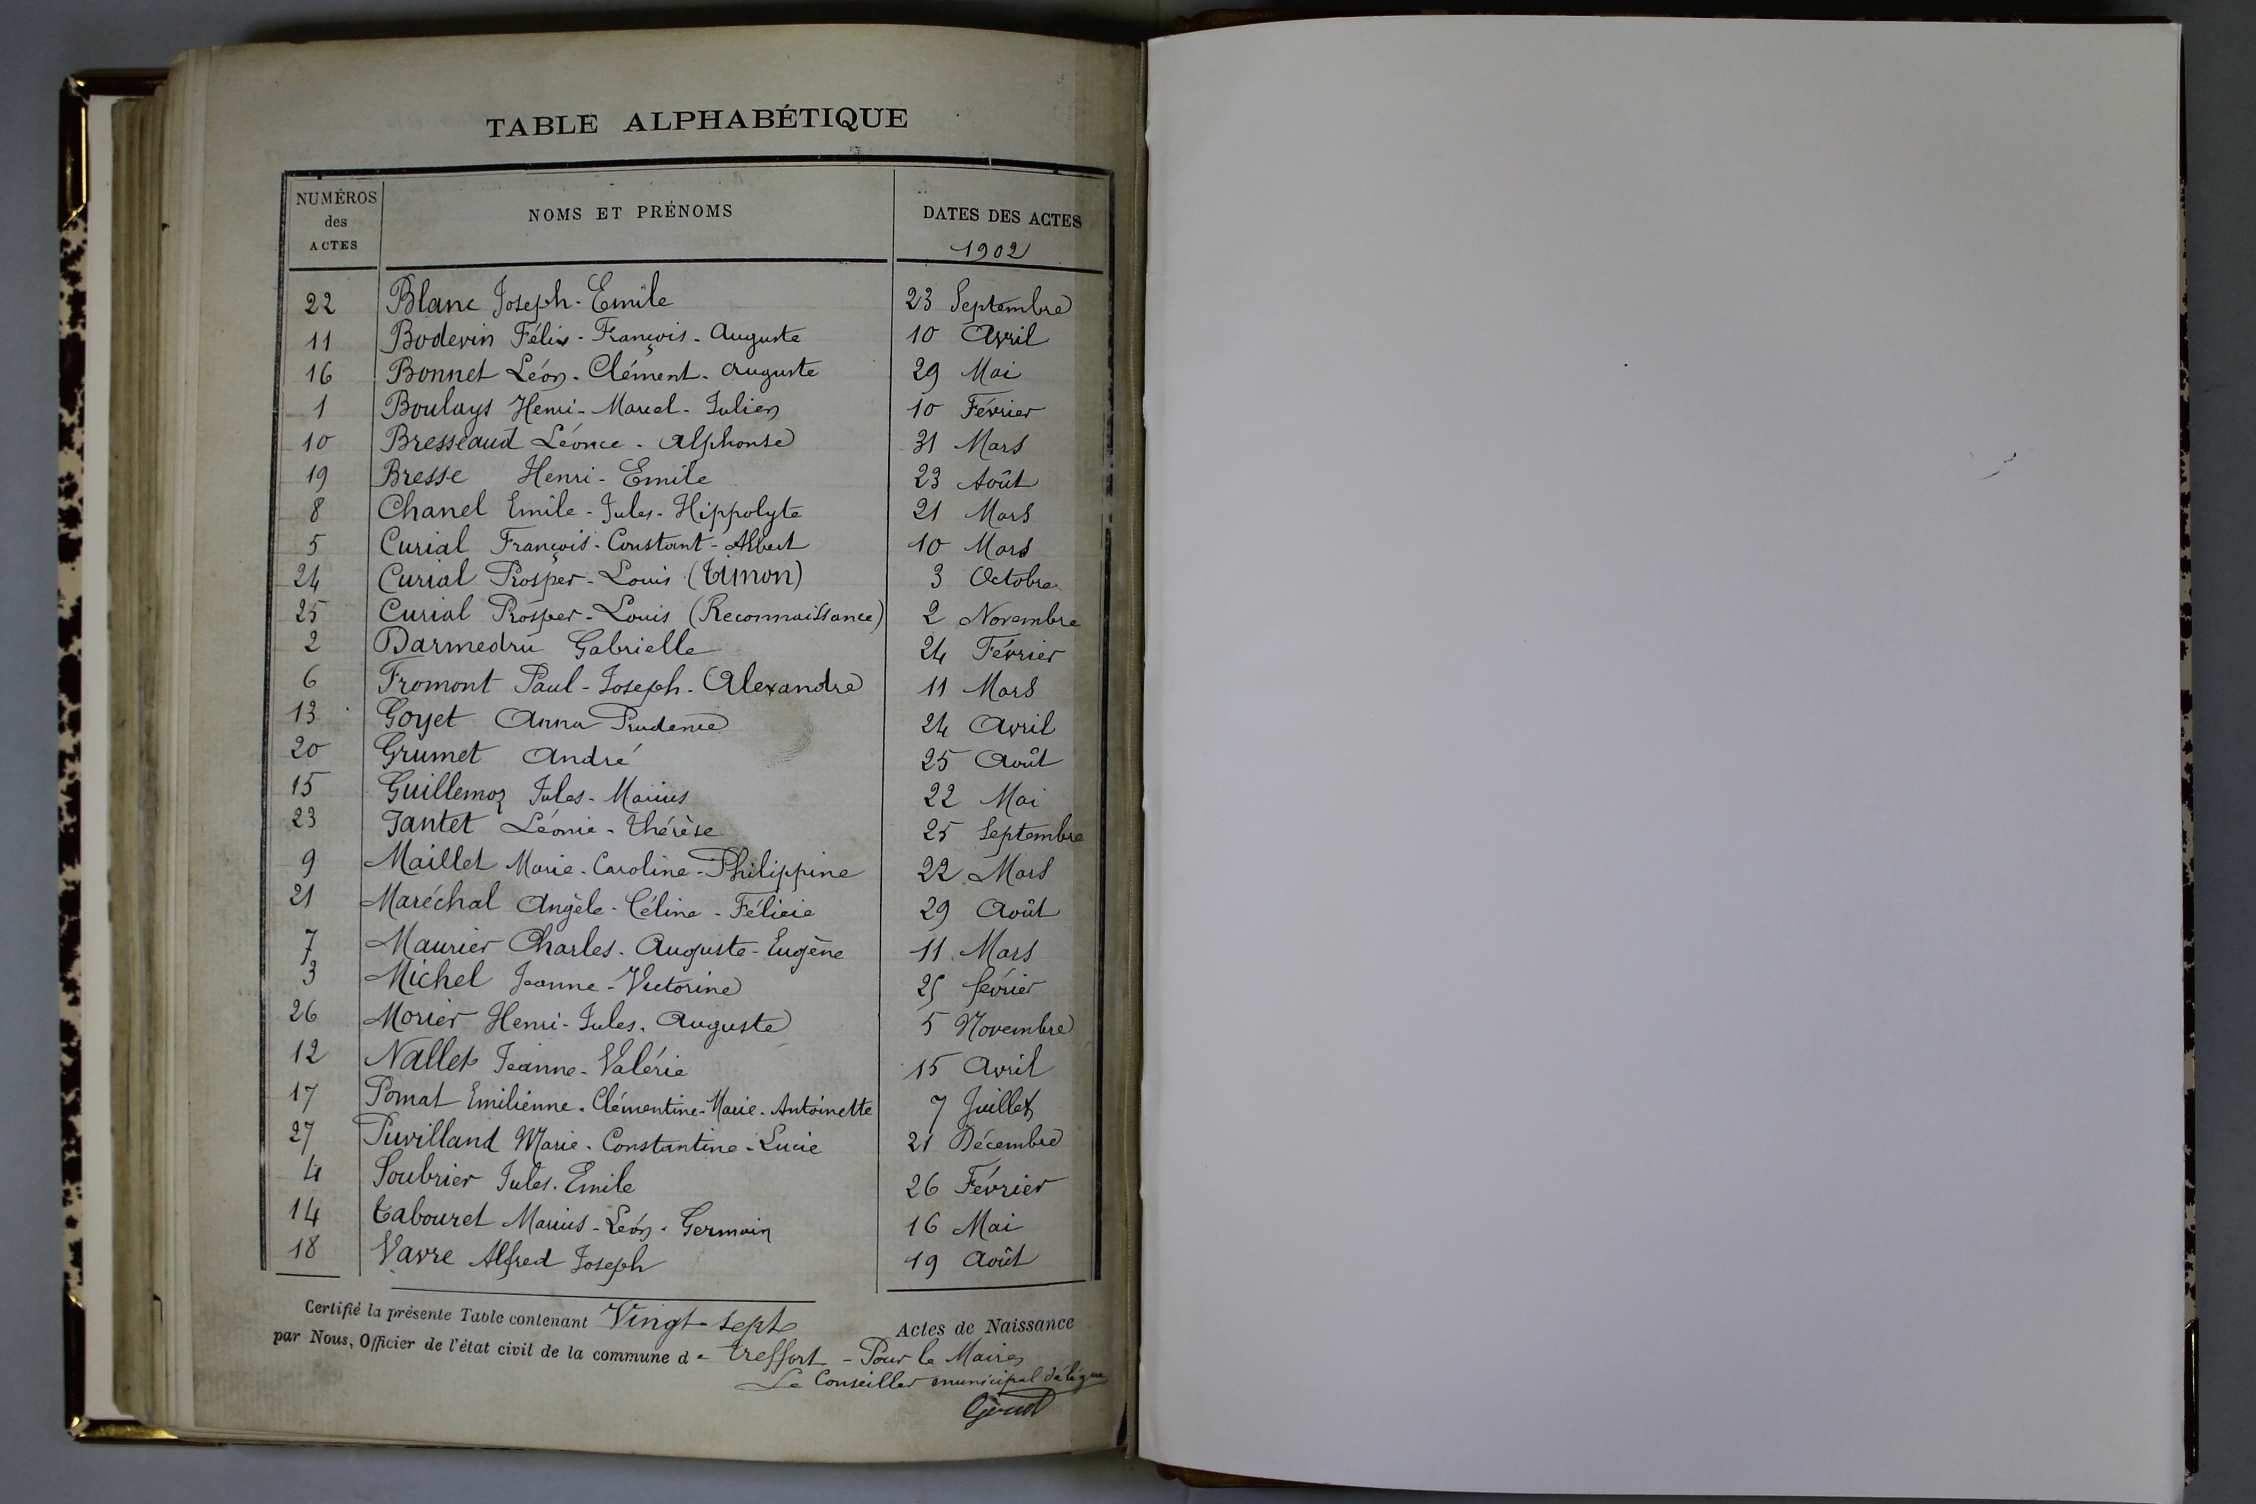 TABLE ALPHABÉTIQUE
NUMÉROS des ACTES NOMS ET PRÉNOMS DATES DES ACTES
1902
22 Blanc Joseph-Emile 23 Septembre
11 Bodevin Félix-François-Auguste 10 Avril
16 Bonnet Léon-Clément-Auguste 29 Mai
1 Boulays Henri-Marcel-Julien 10 Février
10 Bresseaud Léonce-Alphonse 31 Mars
19 Bresse Henri-Emile 23 Août
8 Chanel Emile-Jules-Hippolyte 21 Mars
5 Curial François-Constant-Albert 10 Mars
24 Curial Prosper-Louis (Timon) 3 Octobre
25 Curial Prosper-Louis (Reconnaissance) 2 Novembre
2 Darmedru Gabrielle 24 Février
6 Fromont Paul-Joseph-Alexandre 11 Mars
13 Goyet Anna Prudence 24 Avril
20 Grumet André 25 Août
15 Guillemoz Jules-Marius 22 Mai
23 Jantet Léonie-Thérèse 25 Septembre
9 Maillet Marie-Caroline-Philippine 22 Mars
21 Maréchal Angèle-Céline-Félicie 29 Août
7 Maurier Charles-Auguste-Eugène 11 Mars
3 Michel Jeanne-Victorine 25 février
26 Morier Henri-Jules-Auguste 5 Novembre
12 Nallet Jeanne-Valérie 15 Avril
17 Pomat Emilienne-Clémentine-Marie-Antoinette 7 Juillet
27 Puvilland Marie-Constantine-Lucie 21 Décembre
4 Soubrier Jules-Emile 26 Février
14 Tabouret Marius-Léon-Germain 16 Mai
18 Vavre Alfred Joseph 19 Août
Certifié la présente Table contenant Vingt-sept Actes de Naissance
par Nous, Officier de l'état civil de la commune de Treffort - Pour le Maire,
Le Conseiller municipal délégué